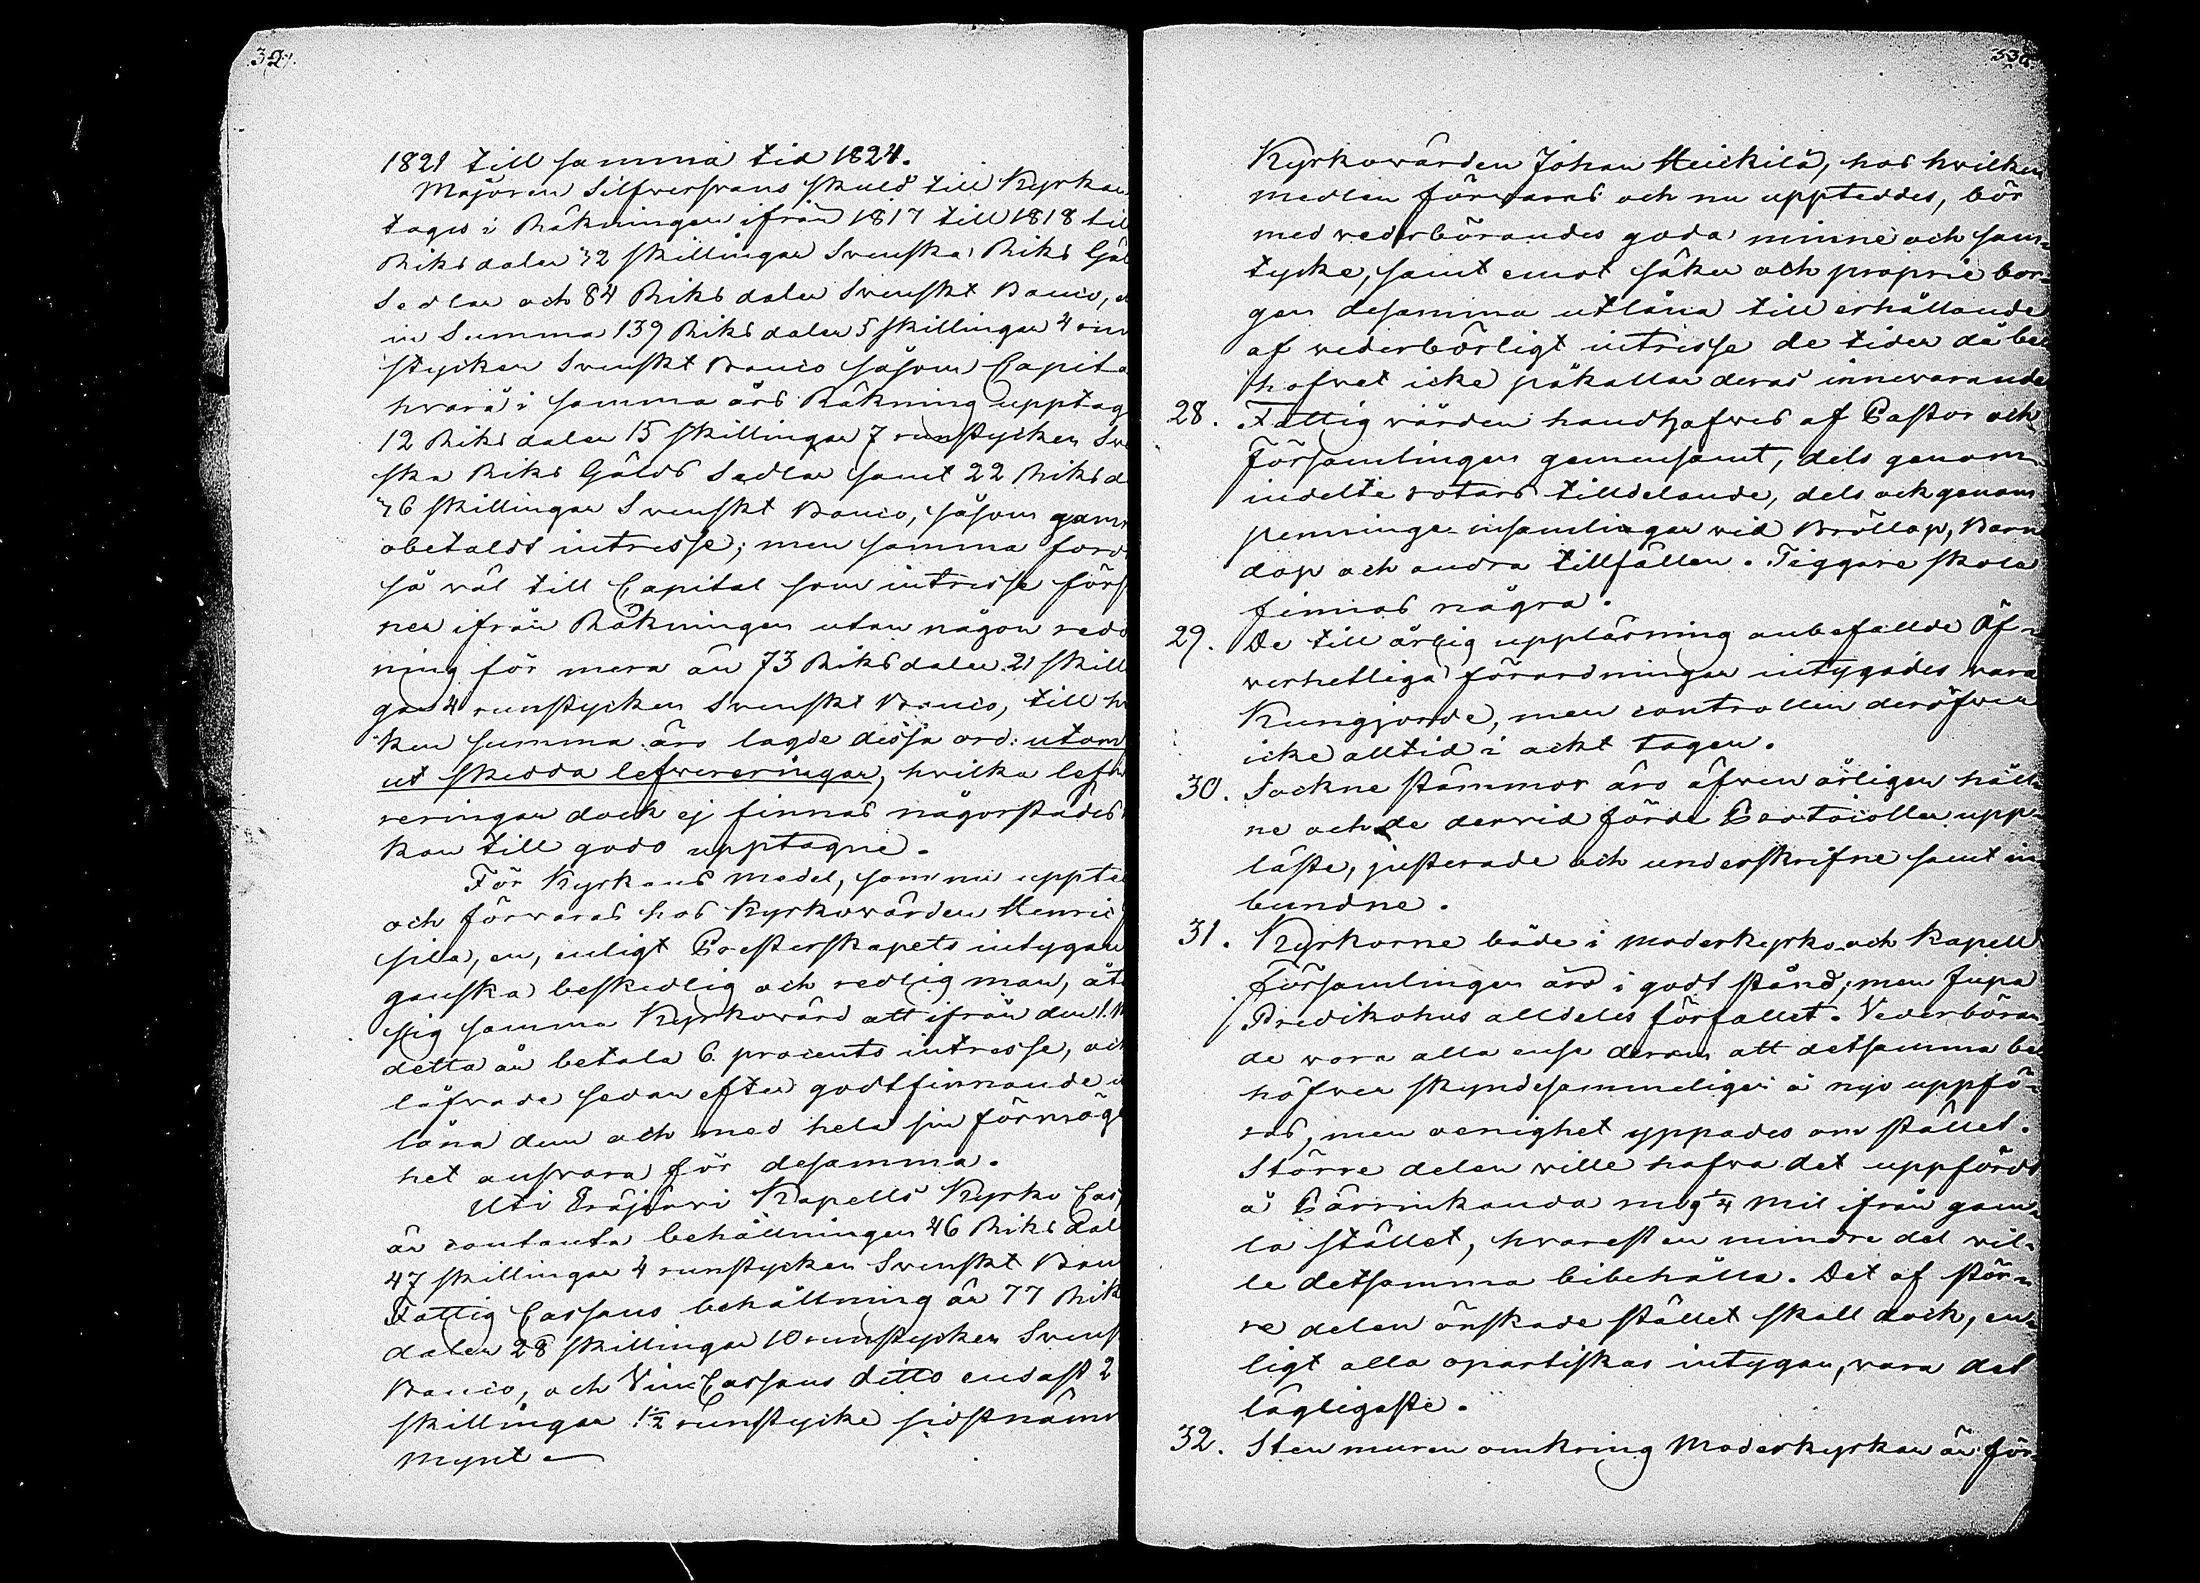 1821 till samma tid 1824.
Majoren Silfversvans skuld till Kyrkan
tages i Räkningen ifrån 1817 till 1818 til
Riksdaler 32 skillingar Svenska Riks Gäl
Sedlar och 84 Riksdaler Svenskt Banco,
in Summa 139 Riksdaler 5 skillingar 4 run
stycken Svenskt Banco såsom Capita
hvará i samma års Räkning upptag
12 Riksdaler 15 skillingar 7 runstycken Sve
ska Riks Gälds Sedlar samt 22 Riksd
36 skillingar Svenskt Banco, såsom gam
obetaldt intresse; men samma ford
så väl till Capital som intresse förs
ner ifrån Räkningen utan någon redo
ning för mera än 73 Riksdaler 21 skill
gar 4 runstycken Svenskt Banco, till hv
ken summa äro lagde dessa ord: utom
ut skedda lefvereringar, hvilka lefv
reringar dock ej finnas någorstädes
kan till godo upptagne.
För Kyrkans medel, som nu uppte
och förvaras hos Kyrkovärden Henric
sila, en, enligt Presterskapets intygan
ganska beskedlig och redlig man, åt
sig samma Kyrkovärd att ifrån den 1.
detta år betala 6 procents intresse, och
låfvade sedan efter godtfinnande
låna dem och med hela sin förmög
het ansvara för desamma.
Uti Träjärvi Kapells Kyrko Cas
är contanta behållningen 46 Riksdal
47 skillingar 4 runstycken Svenskt Ban
Fattig Cassans behållning är 77 Rik
daler 28 skillingar 10 runstycken Svensk
Banco, och Vin Cassans ditto endast 2
skillingar 1½ runstycke sidstnämn
Mynt
Kyrkovärden Johan Heickilä, hos hvilken
medlen förvaras och nu uppteddes, bör
med vederbörandes goda minne och sam-
tycke, samt emot säker och proprie bor-
gen desamma utlåna till erhållande
af vederbörligt intresse de tider då be-
hofvet icke påkallar deras innevarande
28. Fattigvården handhafves af Pastor och
Församlingen gemensamt, dels genom
indelte rotars tilldelande, dels ock genom
penninge-insamlingar vid Bröllop, Barn
dop och andra tillfällen. Tiggare skola
finnas några.
29. De till årlig uppläsning anbefallde Öf-
verhetliga förordningar intygades vara
Kungjorde, men controllen deröfver
icke alltid i ackt tagen.
30. Sockne stämmor äro äfven årligen håll-
ne och de dervid förde Protocoller upp-
läste, justerade och underskrifne samt in
bundne.
31. Kyrkorne både i moderkyrko och Kapell
församlingen äro i godt stånd; men Jupa
Predikohus alldeles förfallet. Vederböran
de voro alla ense derom att detsamma be-
höfver skyndesammeligen å nyo uppfö-
ras, men oenighet yppades om stället.
Större delen ville hafva det uppfördt
å Pärrinkanda mog ¼ Mil ifrån gam-
la stället, hvarest en mindre del vil-
le detsamma bibehålla. Det af stör-
re delen önskade stället skall dock, en-
ligt alla opartiskas intygan, vara det
lägligaste.
32. Stenmuren omkring Moderkyrkan är för-